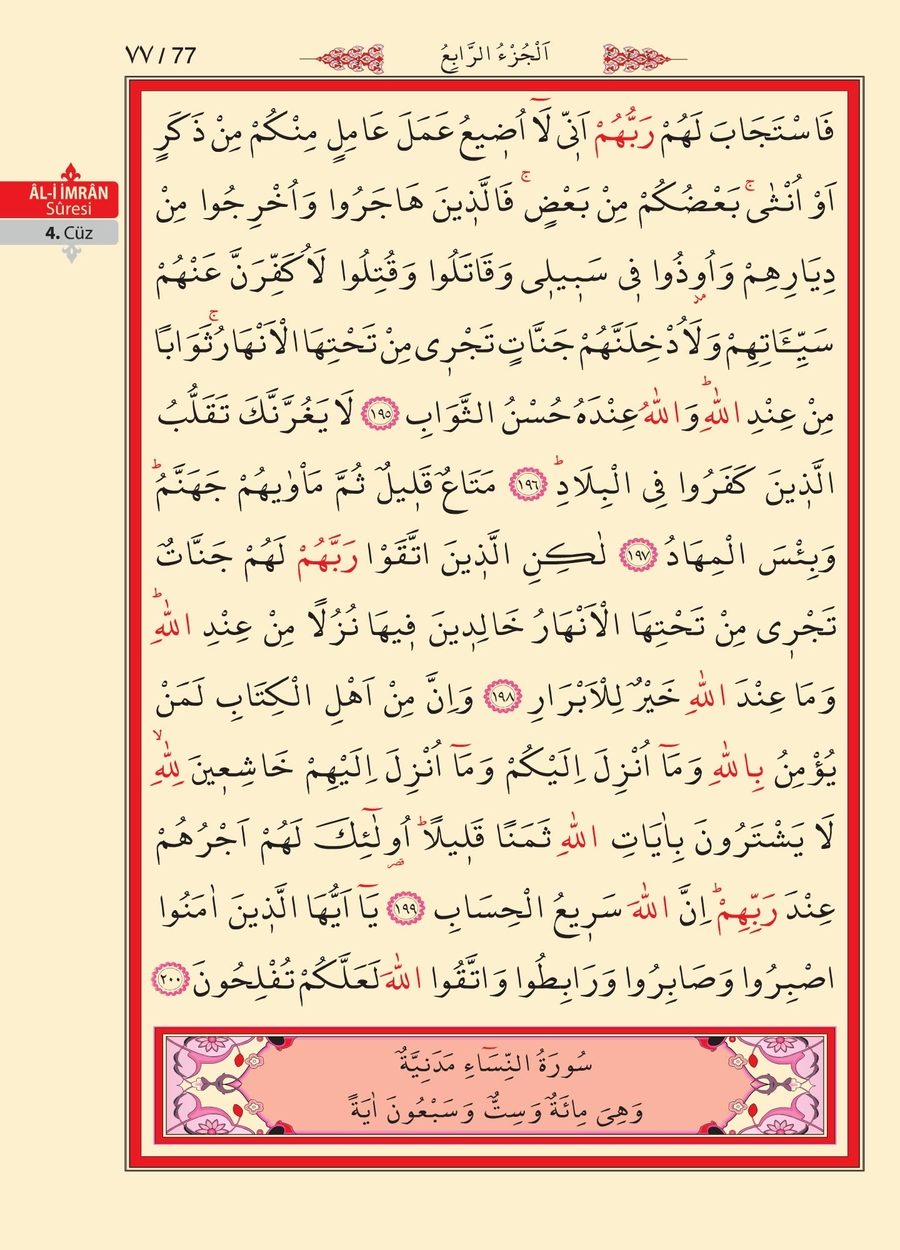 ٧٧ / 77
اَلْجُزْءُ الرَّابِعُ
ÂL-İ İMRÂN
Sûresi
4. Cüz
فَاسْتَجَابَ لَهُمْ رَبُّهُمْ اَنّ۪ي لَٓا اُض۪يعُ عَمَلَ عَامِلٍ مِنْكُمْ مِنْ ذَكَرٍ
اَوْ اُنْثٰىۚ بَعْضُكُمْ مِنْ بَعْضٍۚ فَالَّذ۪ينَ هَاجَرُوا وَاُخْرِجُوا مِنْ
دِيَارِهِمْ وَاُو۫ذُوا ف۪ي سَب۪يل۪ي وَقَاتَلُوا وَقُتِلُوا لَاُكَفِّرَنَّ عَنْهُمْ
سَيِّـَٔاتِهِمْ وَلَاُدْخِلَنَّهُمْ جَنَّاتٍ تَجْر۪ي مِنْ تَحْتِهَا الْاَنْهَارُۚ ثَوَابًا
مِنْ عِنْدِ اللّٰهِۜ وَاللّٰهُ عِنْدَهُ حُسْنُ الثَّوَابِ ﴿١٩٥﴾ لَا يَغُرَّنَّكَ تَقَلُّبُ
الَّذ۪ينَ كَفَرُوا فِي الْبِلَادِۜ ﴿١٩٦﴾ مَتَاعٌ قَل۪يلٌ ثُمَّ مَاْوٰيهُمْ جَهَنَّمُۜ
وَبِئْسَ الْمِهَادُ ﴿١٩٧﴾ لٰكِنِ الَّذ۪ينَ اتَّقَوْا رَبَّهُمْ لَهُمْ جَنَّاتٌ
تَجْر۪ي مِنْ تَحْتِهَا الْاَنْهَارُ خَالِد۪ينَ ف۪يهَا نُزُلًا مِنْ عِنْدِ اللّٰهِۜ
وَمَا عِنْدَ اللّٰهِ خَيْرٌ لِلْاَبْرَارِ ﴿١٩٨﴾ وَاِنَّ مِنْ اَهْلِ الْكِتَابِ لَمَنْ
يُؤْمِنُ بِاللّٰهِ وَمَٓا اُنْزِلَ اِلَيْكُمْ وَمَٓا اُنْزِلَ اِلَيْهِمْ خَاشِع۪ينَ لِلّٰهِۙ
لَا يَشْتَرُونَ بِاٰيَاتِ اللّٰهِ ثَمَنًا قَل۪يلًاۜ اُو۬لٰٓئِكَ لَهُمْ اَجْرُهُمْ
عِنْدَ رَبِّهِمْۜ اِنَّ اللّٰهَ سَر۪يعُ الْحِسَابِ ﴿١٩٩﴾ يَٓا اَيُّهَا الَّذ۪ينَ اٰمَنُوا
اصْبِرُوا وَصَابِرُوا وَرَابِطُوا وَاتَّقُوا اللّٰهَ لَعَلَّكُمْ تُفْلِحُونَ ﴿٢٠٠﴾
سُورَةُ النِّسَٓاءِ مَدَنِيَّةٌ
وَهِيَ مِائَةٌ وَسِتٌّ وَسَبْعُونَ اٰيَةً